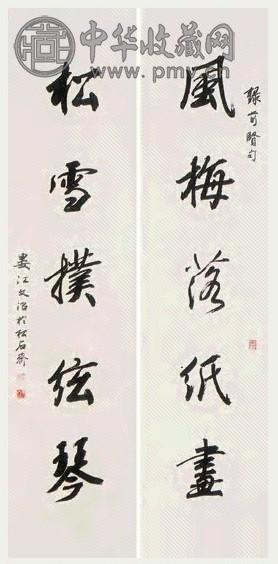 中华收藏网
www.pmy.cn
錄前賢句
風梅落紙畫
松雪撲弦琴
婁江文治於松石齋